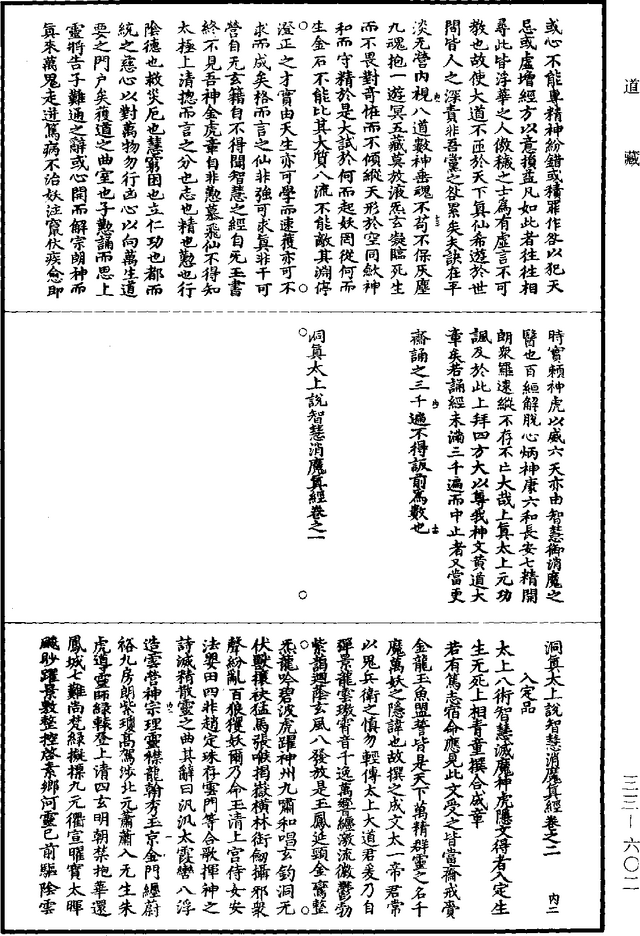 道藏
或心不能專精神紛錯或積罪作咎以犯天
忌或虛增經方以意損益凡如此者往往相
尋此皆浮華之人傲穢之士為有虛言不可
教也故使大道不匝於天下真仙希遊於世
間皆人之深責非吾黨之咎累矣夫訣在乎
淡无營內視八道數神無魂不苟不保灰塵
九魂抱一遊冥五藏莫放液炁玄凝臨死生
而不畏對奇恠而不傾縱天形於空同斂神
和而守精於是大試於何而起妖罔從何而
生金石不能比其大質八流不能敵其淵停
澄正之才實由天生亦可學而速獲亦可不
求而成矣格而言之仙非強可求真非干可
營自无玄籍自不得聞智慧之經自死玉書
終不見吾神金虎章自非懃慕飛仙不得知
太極上清揔而言之分也志也精也懃也行
陰德也救災厄也慧窮困也立仁功也都而
統之慈心以對萬物勿行凶心以向萬生道
要之門戶矣獲道之曲室也子懃誦而思上
靈將告子難通之辭或心開而解宗朗神而
真來萬鬼走迸篤病不治妖注竄伏疾愈即
時實賴神虎以威六天亦由智慧御消魔之
醫也百緪解脫心炳神康六和長安七精開
朗衆羅遠縱不存不亡大哉上真太上元功
諷及於此上拜四方大以尊我神文黃道大
章矣若誦經未滿三千遍而中止者又當更
齋誦之三千遍不得計前為數也
洞真太上說智慧消魔真經卷之一
洞真太上說智慧消魔真經卷之二 內二
入定品
太上八術智慧滅魔神虎隱文得者入定生
生无死上相青童撰合成章
若有篤志宿命應見此文受之皆當齋戒賫
金龍玉魚盟誓皆是天下萬精群靈之名千
魔萬妖之隱諱也故撰之成文太一帝君常
以鬼兵衛之慎勿輕傳太上大道君爰乃自
彈景龍雲璈霄音千逸萬響纏激流徽鬱勃
紫藹迴蔭玄風八發放是玉鳳延頸金鸞整
炁龍吟碧波虎躍神州九嘯和唱玄鈞洞无
伏獸攘袂猛馬張喉揭嶽橫林銜劒攝邪衆
聲紛亂百狼玃妖爾乃命玉清上宮侍女安
法嬰田四非趙定珠存雲門等合歌揮神之
詩滅精散靈之曲其辭曰汎汎太霞巒八浮
造雲營神宗理靈襟龍翰秀玉京金門纏蔚
裕九房朗紫瓊高駕涉北元蕭蕭入元生朱
虎導雲師綠軿登上清四玄明朝禁抱華還
鳳城七難尚梵綠擬操九元衢宣曜寶太暉
飈眇躍景敷整控啓素鄉河靈已前驅除雲
三三—六〇二